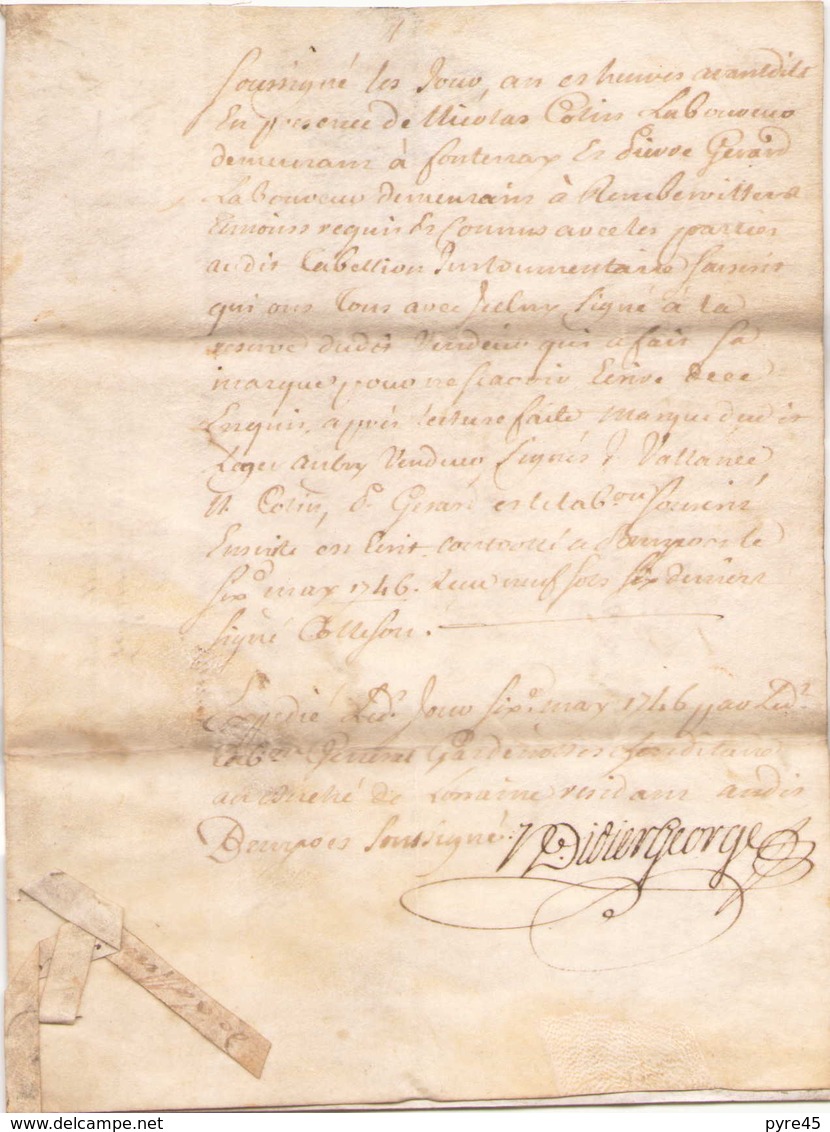 soussigné les Jour, an et heures avantdits
En presence de Nicolas Colin Laboureur
demeurant à fontenay Et Pierre Gerard
Laboureur demeurant à Rembervillers
temoins requis Et Connus avec les parties
audit tabellion Instrumentaire
qui ont tous avec Iceluy signé à la
reserve dudit Vendeur qui a fait sa
marque pour ne scavoir Ecrire de ce
Enquis, après lecture faite marque dudit
Leger aubry Vendeur, signés Vallance
N Colin, P Gerard et le tabon soussigné
Ensuite est Ecrit controllé a le
six may 1746. Receu neuf sols six deniers
signé Colleson.
Expedié Led. Jour six may 1746 par Led.
tabon General Gardenottes hereditaire
au Duché de Lorraine residant audit
soussigné.
Didier George
pyre45